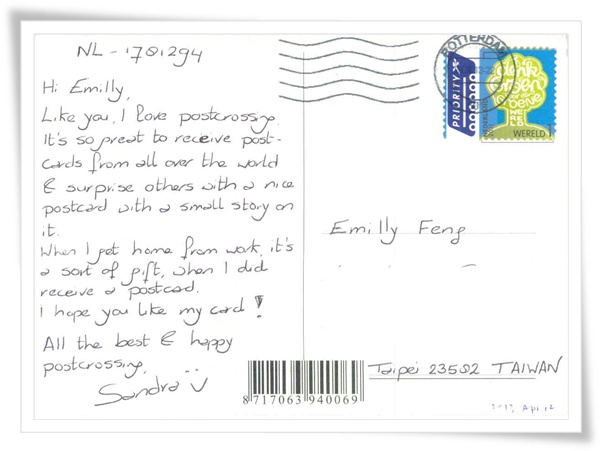 NL - 1701294
Hi Emilly,
Like you, I love postcrossing.
It's so great to receive post-
cards from all over the world
& surprise others with a nice
postcard with a small story on
it.
When I get home from work, it's
a sort of gift, when I did
receive a postcard.
I hope you like my card!
All the best & happy
postcrossing,
Sandra
ROTTERDAM
PRIORITY
NEDERLAND
denk
groen
doe
WERELD 1
Emilly Feng
Taipei 23502 TAIWAN
8 717063 940069
2013 Apr 12